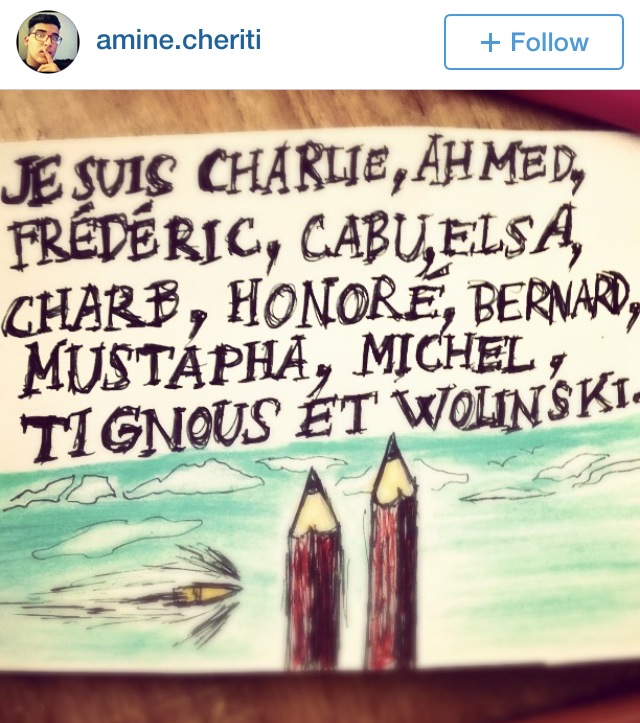 amine.cheriti
+ Follow
JE SUIS CHARLIE, AHMED,
FRÉDÉRIC, CABU, ELSA,
CHARB, HONORÉ, BERNARD,
MUSTAPHA, MICHEL,
TIGNOUS ET WOLINSKI.